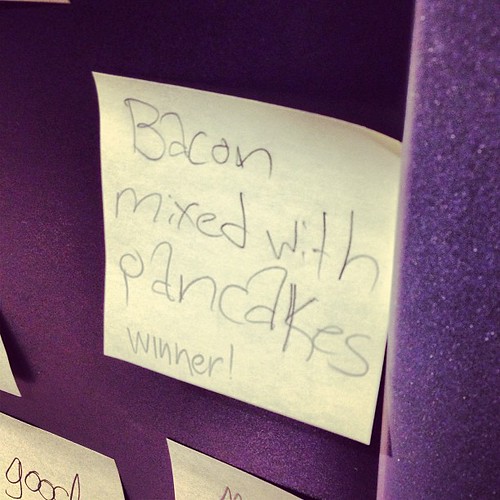 Bacon
mixed with
pancakes
winner!
good